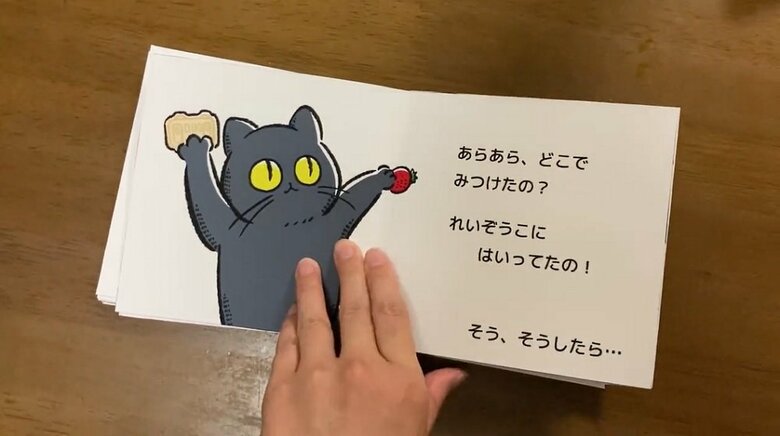 あらあら、どこで
みつけたの？
れいぞうこに
はいってたの！
そう、そうしたら…